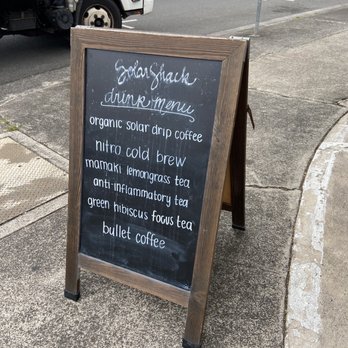 Solar Shack
drink menu
organic solar drip coffee
nitro cold brew
mamaki lemongrass tea
anti inflammatory tea
green hibiscus focus tea
bullet coffee